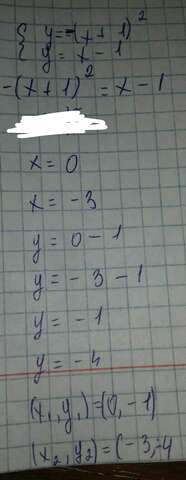 { y = -(x + 1)²
{ y = x - 1
-(x + 1)² = x - 1
x = 0
x = -3
y = 0 - 1
y = -3 - 1
y = -1
y = -4
(x₁, y₁) = (0, -1)
(x₂, y₂) = (-3, -4